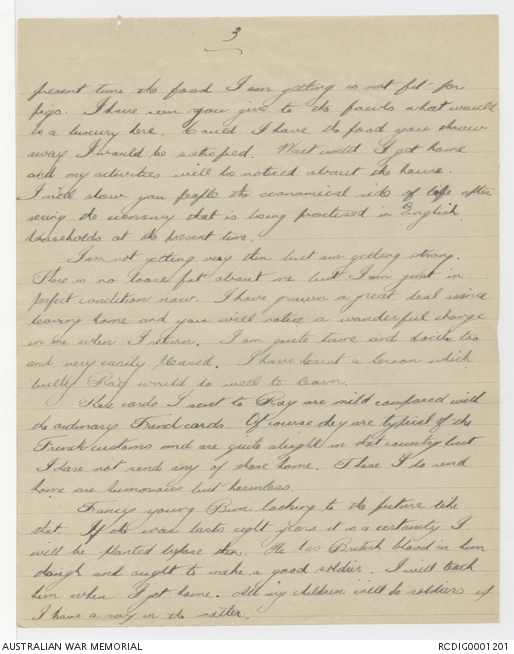 3
present time the food I am getting is not fit for
pigs. I have seen you give to the fowls what would
be a luxury here. Could I have the food you throw
away I would be satisfied. Wait until I get home
and my activities will be noticed about the house.
I will show you people the economical side of life after
seeing the economy that is being practised in English
households at the present time.
I am not getting very thin but am getting strong.
There is no loose fat about me but I am just in
perfect condition now. I have grown a great deal since
leaving home and you will notice a wonderful change
in me when I return. I am quite tame and docile too
and very easily pleased. I have learnt a lesson which
bully Ray would do well to learn.
The cards I sent to Ray are mild compared with
the ordinary French cards. Of course they are typical of the
French customs and are quite alright in that country but
I dare not send any of those home. These I do send
home are humorous but harmless.
Fancy young Bun looking to the future like
that. If the war lasts eight years it is a certainty I
will be planted before then. He has British blood in him
though and ought to make a good soldier. I will teach
him when I get home. All my children will be soldiers if
I have a say in the matter.
AUSTRALIAN WAR MEMORIAL
RCDIG0001201